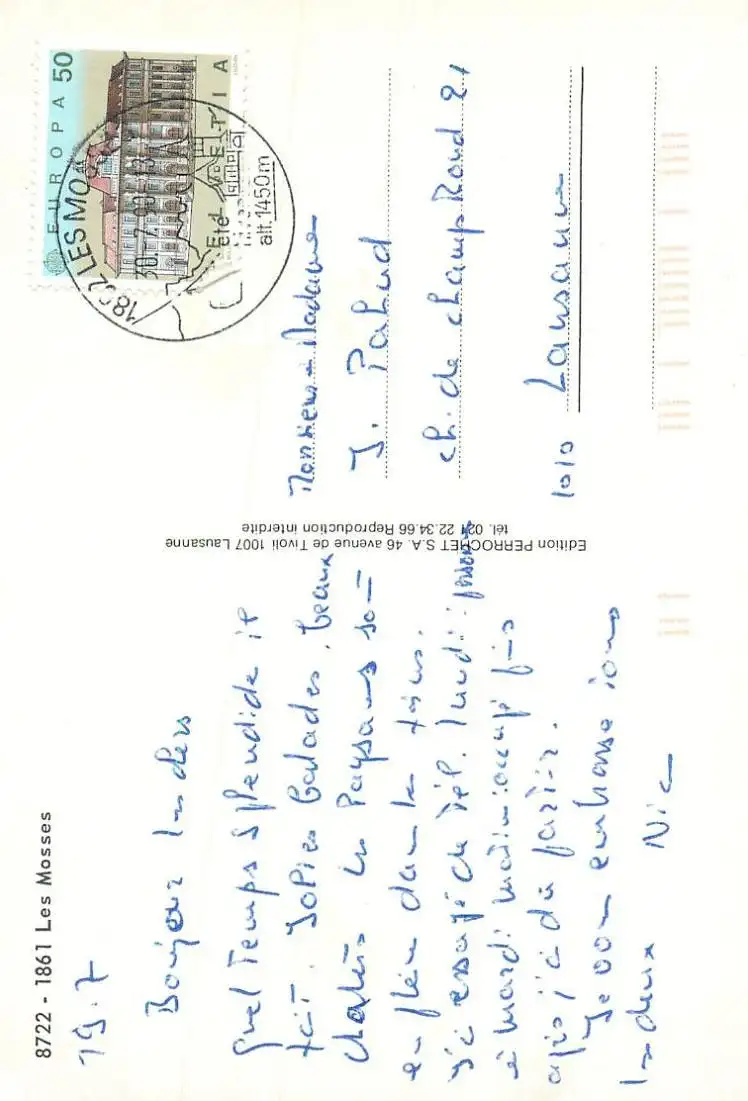 8722 - 1861 Les Mosses
19.7
Bonjour les deux
Quel temps splendide il
fait. Jolies balades, beaux
chalets les Paysans so=
en plein dans les foins.
J'ai essayé de tél. lundi: personne
et mardi matin: occupé puis
après j'ai dû partir.
Je vous embrasse tous
les deux
Nic
Edition PERROCHET S.A. 46 avenue de Tivoli 1007 Lausanne
tél. 021 22.34.66 Reproduction interdite
EUROPA 50
HELVETIA
LES MO
30.-7.90-13
été
alt. 1450m
Monsieur & Madame
J. Pahud
ch. de champ Rond 21
1010 Lausanne